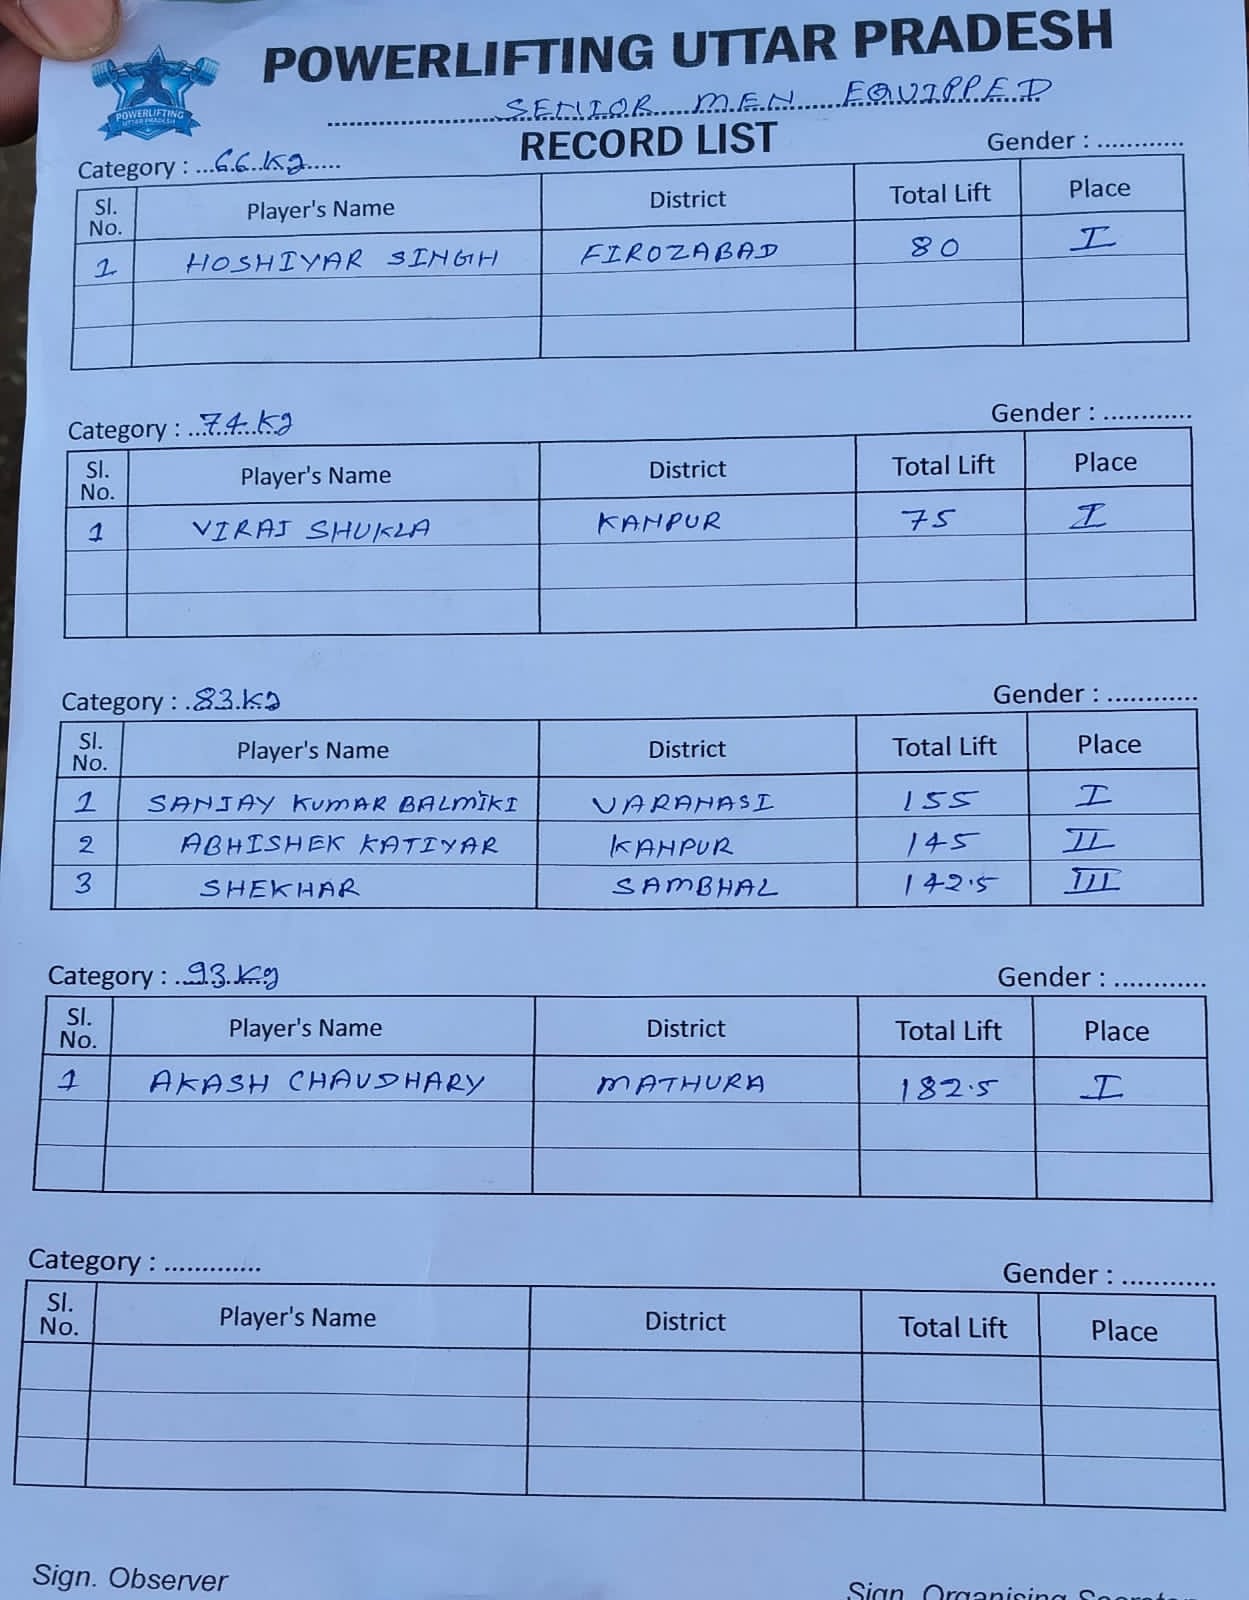 POWERLIFTING UTTAR PRADESH
POWERLIFTING
UTTAR PRADESH
SENIOR MEN EQUIPPED
RECORD LIST
Category : 66 Kg Gender : ............
Sl. No. Player's Name District Total Lift Place
1 HOSHIYAR SINGH FIROZABAD 80 I
Category : 74 Kg Gender : ............
Sl. No. Player's Name District Total Lift Place
1 VIRAJ SHUKLA KANPUR 75 I
Category : 83 Kg Gender : ............
Sl. No. Player's Name District Total Lift Place
1 SANJAY KUMAR BALMIKI VARANASI 155 I
2 ABHISHEK KATIYAR KANPUR 145 II
3 SHEKHAR SAMBHAL 142.5 III
Category : 93 Kg Gender : ............
Sl. No. Player's Name District Total Lift Place
1 AKASH CHAUDHARY MATHURA 182.5 I
Category : ............. Gender : ............
Sl. No. Player's Name District Total Lift Place
Sign. Observer Sign. Organising Secretary